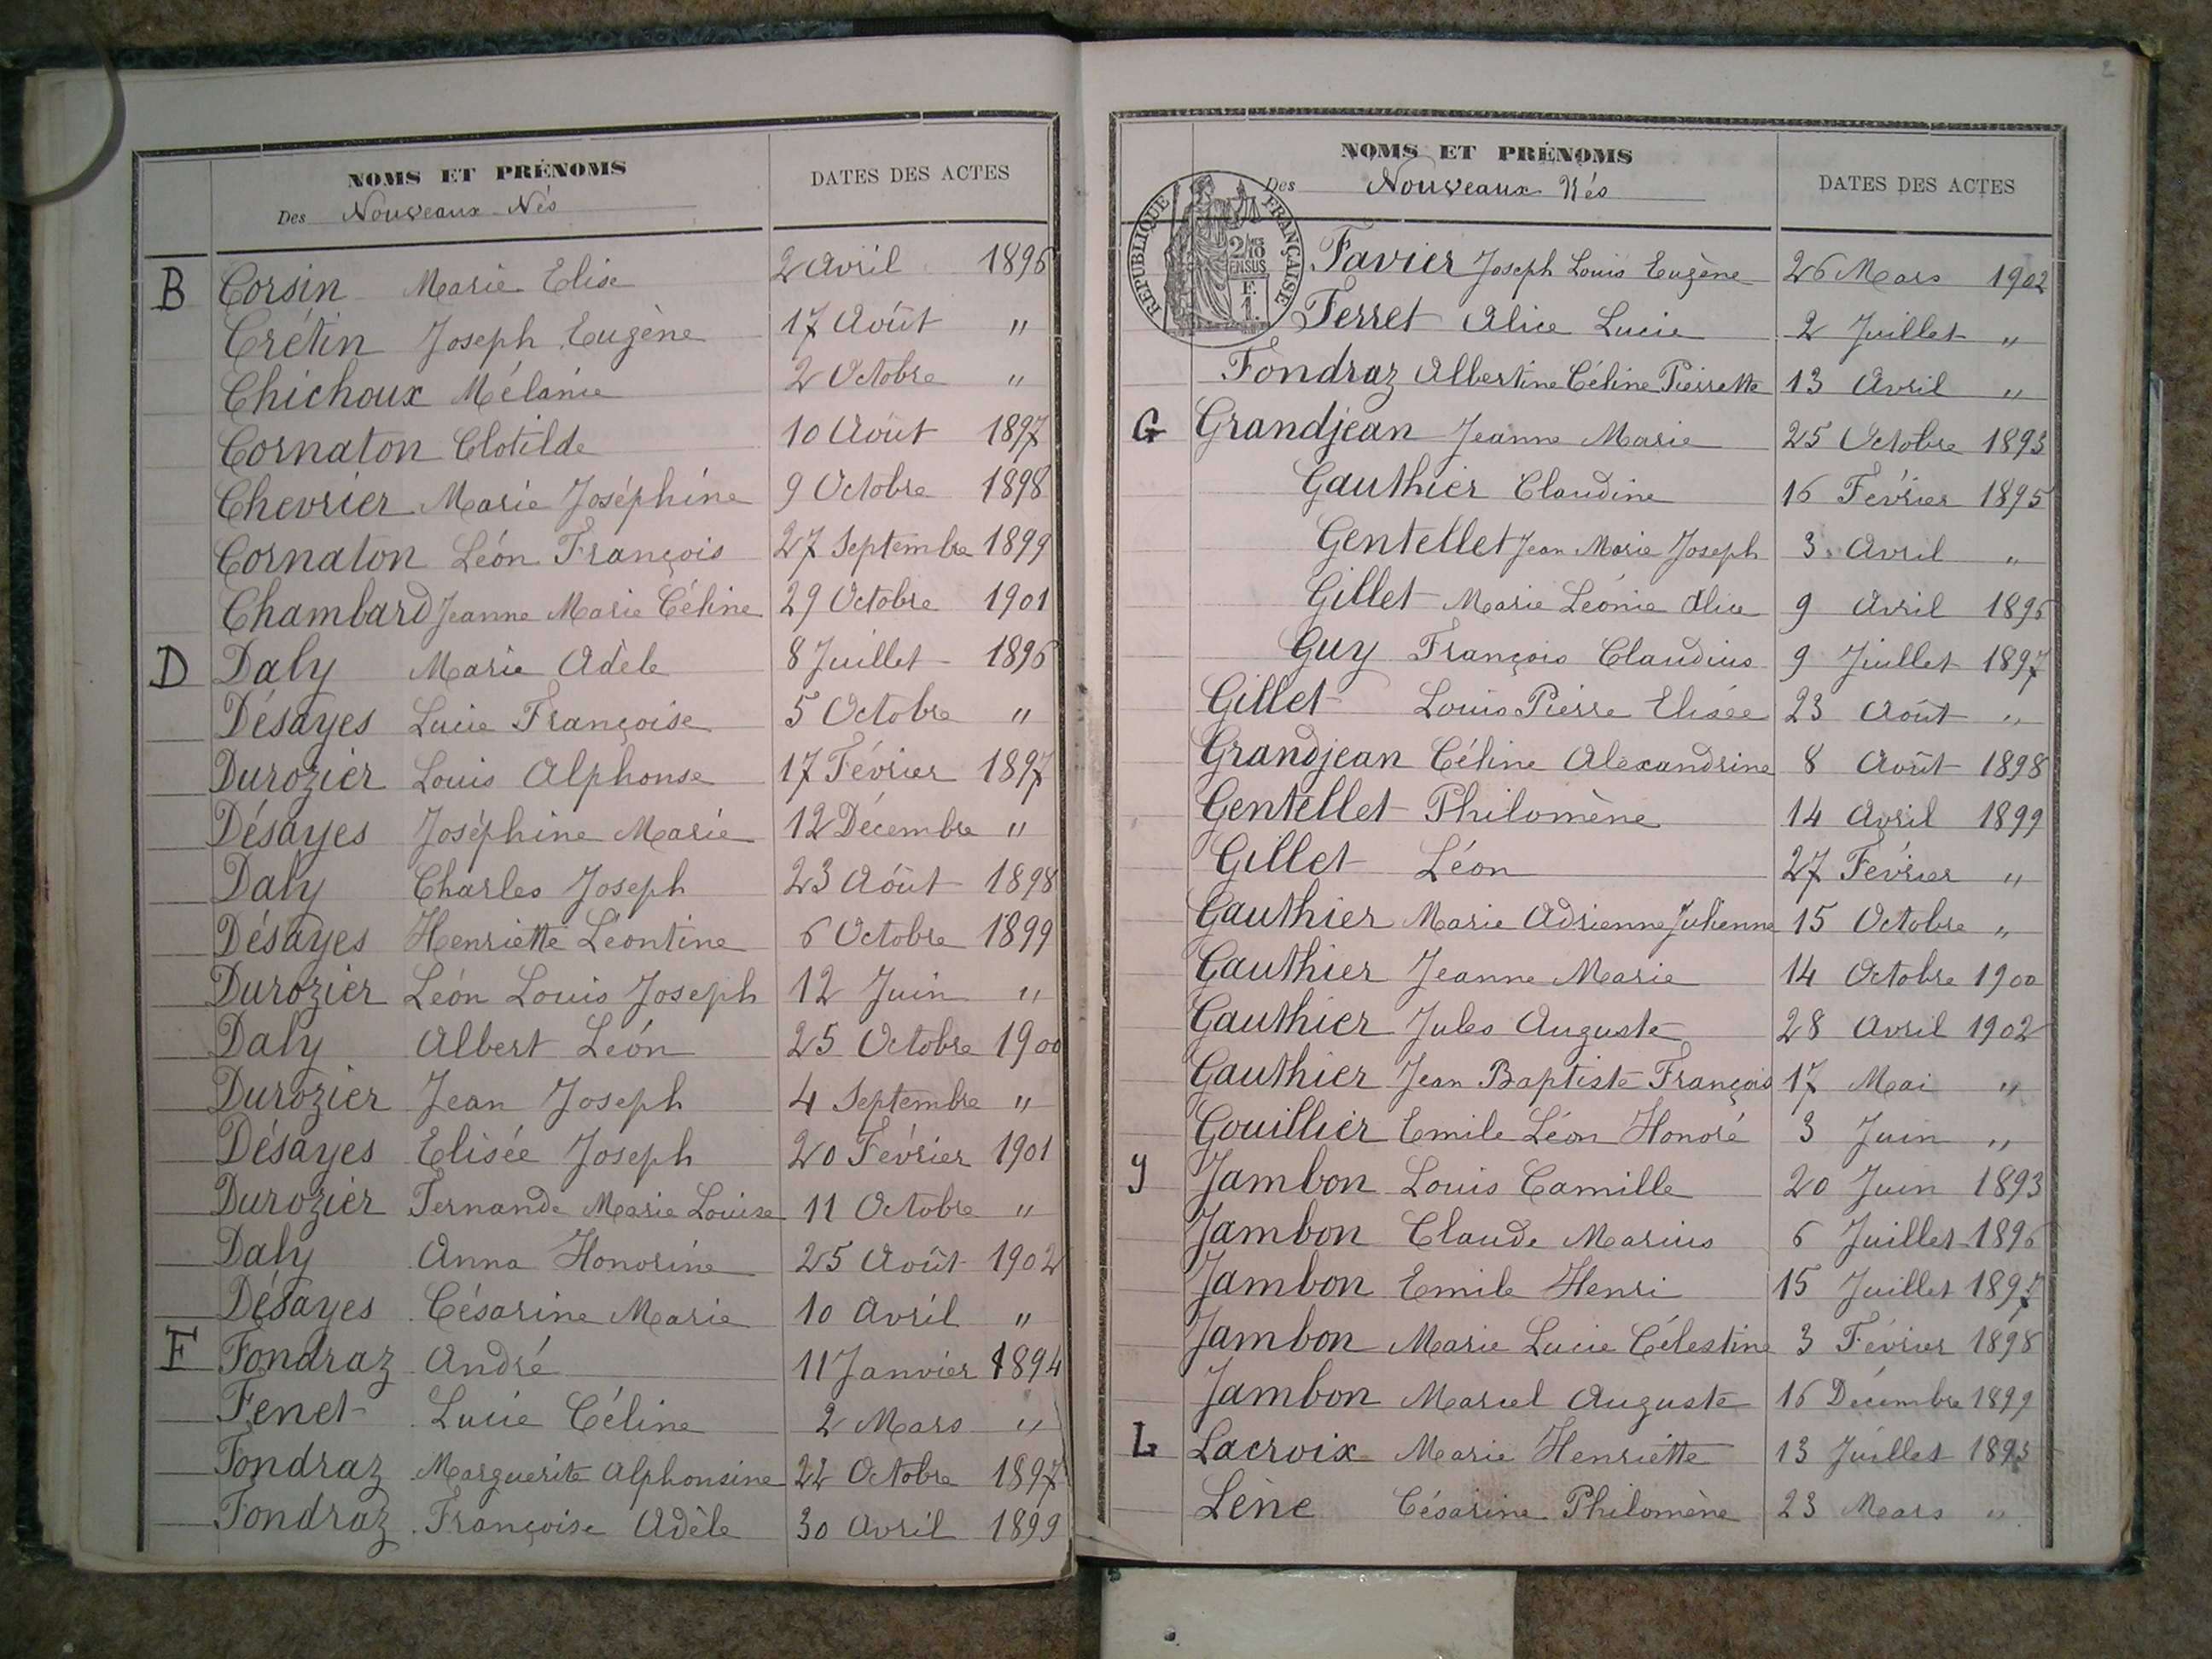 NOMS ET PRÉNOMS
Des Nouveaux Nés
DATES DES ACTES
B Corsin Marie Elise 2 Avril 1896
Crétin Joseph Eugène 17 Août "
Chichoux Mélanie 2 Octobre "
Cornaton Clotilde 10 Août 1897
Chevrier Marie Joséphine 9 Octobre 1898
Cornaton Léon François 27 Septembre 1899
Chambard Jeanne Marie Céline 29 Octobre 1901
D Daly Marie Adèle 8 Juillet 1896
Désayes Lucie Françoise 5 Octobre "
Durozier Louis Alphonse 17 Février 1897
Désayes Joséphine Marie 12 Décembre "
Daly Charles Joseph 23 Août 1898
Désayes Henriette Léontine 6 Octobre 1899
Durozier Léon Louis Joseph 12 Juin "
Daly Albert Léon 25 Octobre 1900
Durozier Jean Joseph 4 Septembre "
Désayes Elisée Joseph 20 Février 1901
Durozier Fernande Marie Louise 11 Octobre "
Daly Anna Honorine 25 Août 1902
Désayes Césarine Marie 10 Avril "
F Fondraz André 11 Janvier 1894
Fenet Lucie Céline 2 Mars "
Fondraz Marguerite Alphonsine 22 Octobre 1897
Fondraz Françoise Adèle 30 Avril 1899
2
NOMS ET PRÉNOMS
Des Nouveaux Nés
DATES DES ACTES
RÉPUBLIQUE FRANÇAISE
2/10
EN SUS
F.
1.
Favier Joseph Louis Eugène 26 Mars 1902
Ferret Alice Lucie 2 Juillet "
Fondraz Albertine Céline Pierrette 13 Avril "
G Grandjean Jeanne Marie 25 Octobre 1893
Gauthier Claudine 16 Février 1895
Gentellet Jean Marie Joseph 3 Avril "
Gillet Marie Léonie Alice 9 Avril 1896
Guy François Claudius 9 Juillet 1897
Gillet Louis Pierre Elisée 23 Août "
Grandjean Céline Alexandrine 8 Août 1898
Gentellet Philomène 14 Avril 1899
Gillet Léon 27 Février "
Gauthier Marie Adrienne Julienne 15 Octobre "
Gauthier Jeanne Marie 14 Octobre 1900
Gauthier Jules Auguste 28 Avril 1902
Gauthier Jean Baptiste François 17 Mai "
Gouillier Emile Léon Honoré 3 Juin "
J Jambon Louis Camille 20 Juin 1893
Jambon Claude Marius 6 Juillet 1896
Jambon Emile Henri 15 Juillet 1897
Jambon Marie Lucie Célestine 3 Février 1898
Jambon Marcel Auguste 16 Décembre 1899
L Lacroix Marie Henriette 13 Juillet 1893
Lène Césarine Philomène 23 Mars "